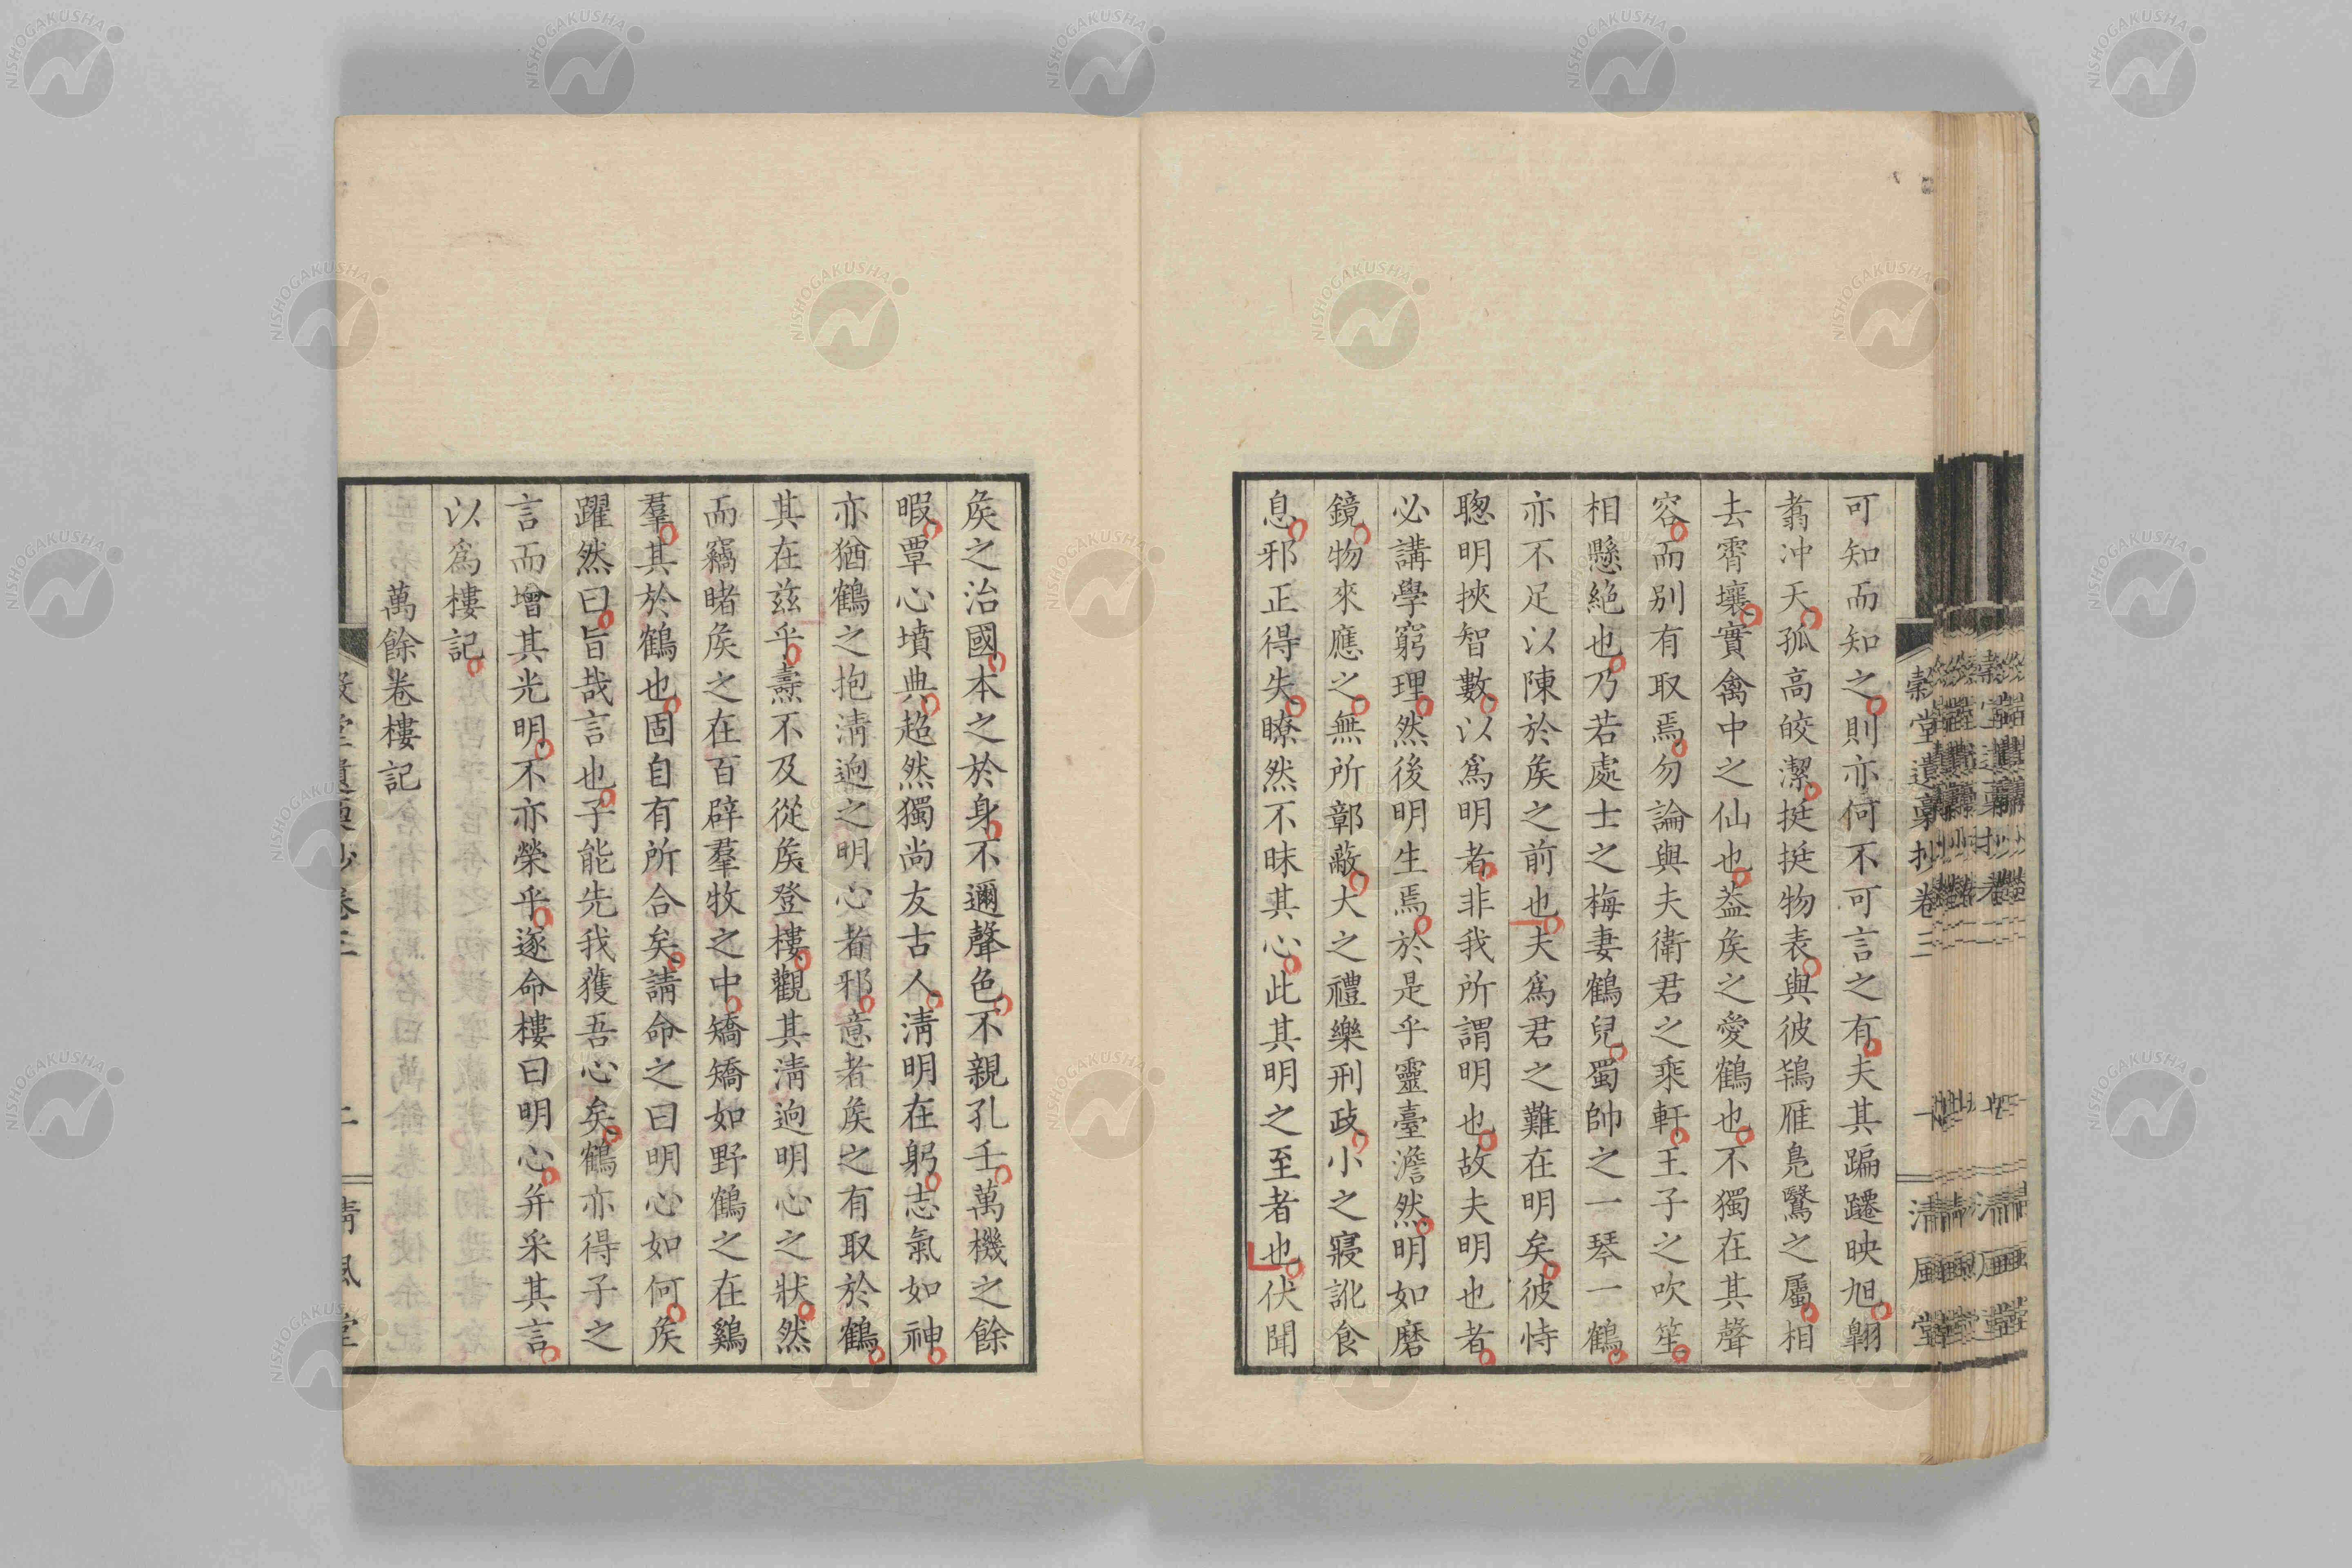 可知而知之則亦何不可言之有夫其蹁躚映旭翱
翥沖天孤高皎潔挺挺物表與彼鴇雁鳧鷖之屬相
去霄壤實禽中之仙也葢矦之愛鶴也不獨在其聲
容而別有取焉勿論與夫衛君之乘軒王子之吹笙
相懸絶也乃若處士之梅妻鶴兒蜀帥之一琴一鶴
亦不足以陳於矦之前也夫爲君之難在明矣彼恃
聰明挾智數以爲明者非我所謂明也故夫明也者
必講學窮理然後明生焉於是乎靈臺澹然明如磨
鏡物來應之無所鄣蔽大之禮樂刑政小之寢訛食
息邪正得失瞭然不昧其心此其明之至者也伏聞
穀堂遺稾抄卷三
一
清風堂
矦之治國本之於身不邇聲色不親孔壬萬機之餘
暇覃心墳典超然獨尚友古人清明在躬志氣如神
亦猶鶴之抱清迥之明心者邪意者矦之有取於鶴
其在兹乎燾不及從矦登樓觀其清迥明心之狀然
而竊睹矦之在百辟羣牧之中矯矯如野鶴之在鷄
羣其於鶴也固自有所合矣請命之曰明心如何矦
躍然曰旨哉言也子能先我獲吾心矣鶴亦得子之
言而增其光明不亦榮乎遂命樓曰明心并采其言
以爲樓記
萬餘卷樓記
穀堂遺稾抄卷三
二
清風堂
NISHOGAKUSHA